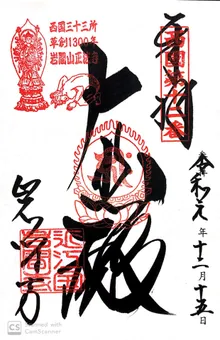 奉拝
西国十二番
西国三十三所
草創1300年
岩間山正法寺
大悲殿
岩間寺
令和元年十二月十五日
CS Scanned with
CamScanner